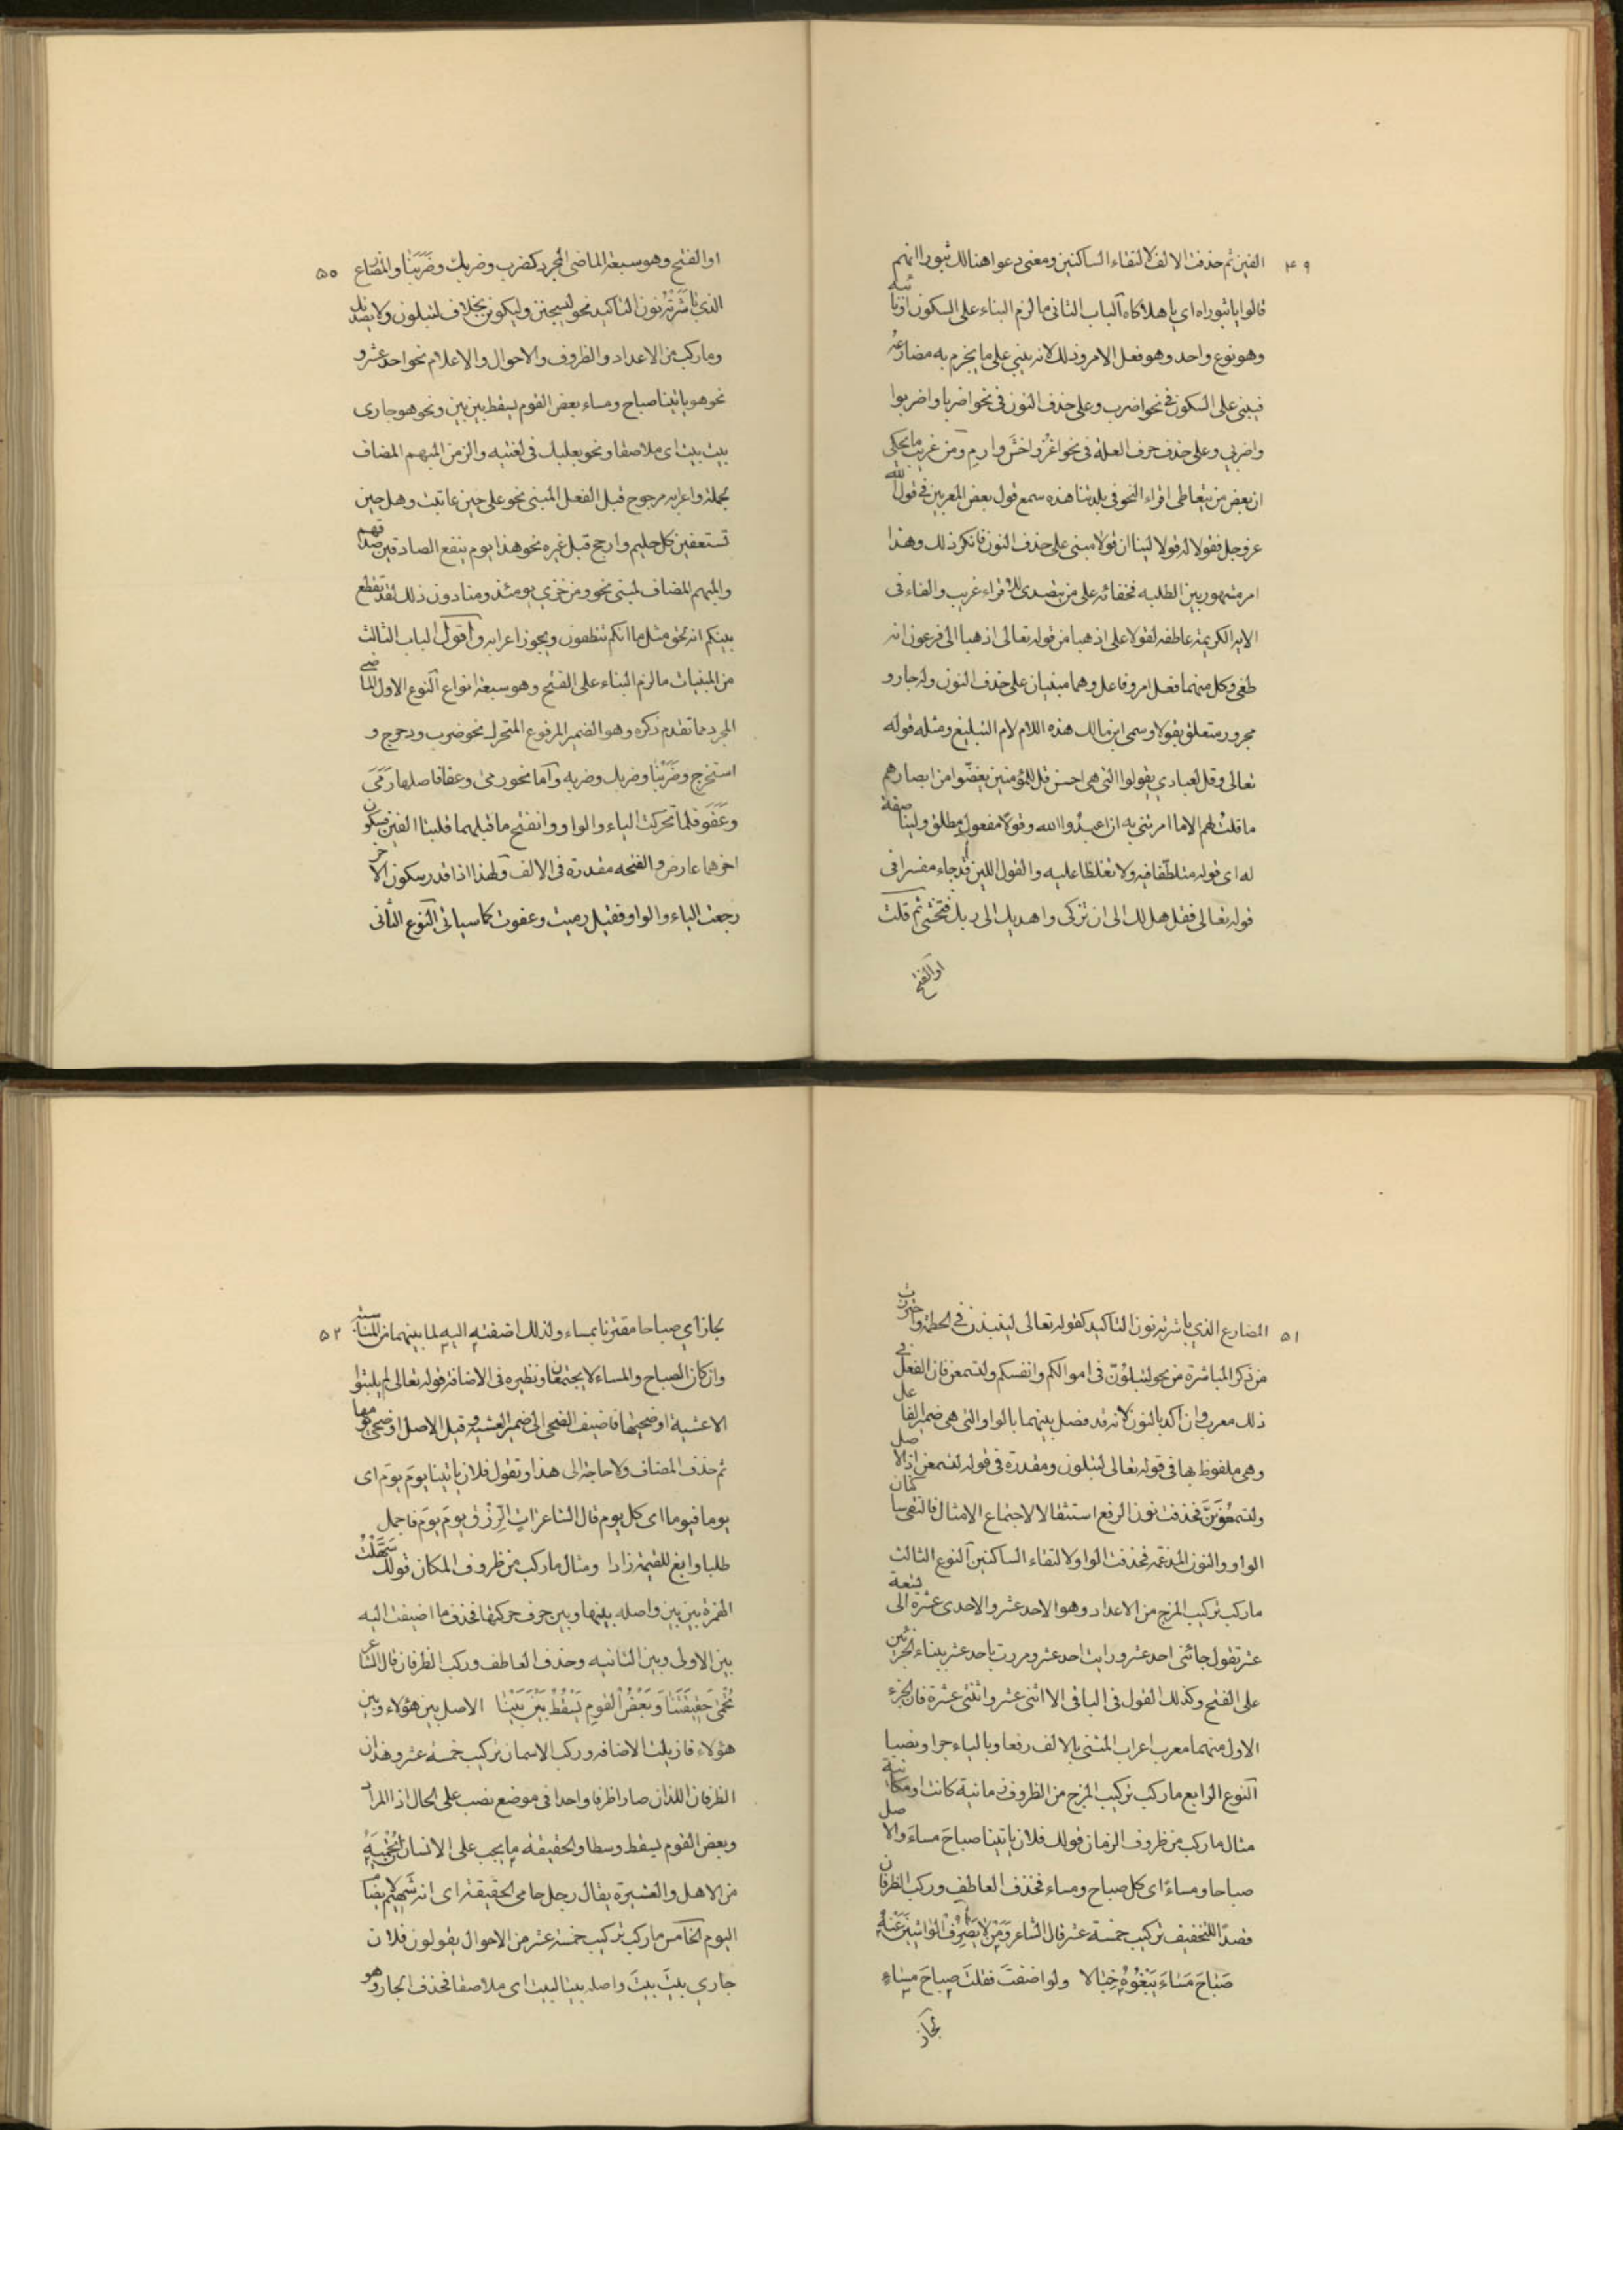 ٤٩
الفين ثم حذفت الالف لالتقاء الساكنين ومعنى دعوا هنالك ثبورا انهم
قالوا يا ثبوراه اي يا هلاكاه الباب الثانى ما لزم البناء على السكون او نائبه
وهو نوع واحد وهو فعل الامر وذلك لانه يبني على ما يجزم به مضارعه
فيبنى على السكون في نحو اضرب وعلى حذف النون فى نحو اضربا واضربوا
واضربي وعلى حذف حرف العلة فى نحو اغزُ واخشَ وارمِ ومن غريب ما يحكى
ان بعض من يتعاطى اقراء النحو فى بلدتنا هذه سمع قول بعض المعربين في قول الله
عز وجل فقولا له قولا لينا ان قولا مبنى على حذف النون فانكر ذلك وهذا
امر مشهور بين الطلبه فخفائه على من يتصدى للاقراء غريب والفاء فى
الايه الكريمة عاطفه لقولا على اذهبا من قوله تعالى اذهبا الى فرعون انه
طغى وكل منهما فعل امر وفاعل وهما مبنيان على حذف النون وله جار و
مجرور متعلق بقولا وسمى ابن مالك هذه اللام لام التبليغ ومثله قوله
تعالى وقل لعبادي يقولوا التى هى احسن قل للمؤمنين يغضّوا من ابصارهم
ما قلتُ لهم الا ما امرتنى به ان اعبدُوا الله وقولا مفعول مطلق ولينا صفة
له اى قولا متلطّفا فيه ولا تغلظا عليه والقول اللين قد جاء مفسرا فى
قوله تعالى فقل هل لك الى ان تزكى واهديك الى ربك فتخشى ثم قلت
او الفتح
٥٥
او الفتح وهو سبعة الماضى المجرد كضرب وضربك وضَرَبَنَا والمضارع
الذي باشَرَتْهُ نون التاكيد نحو ليسجنن وليكونن بخلاف لتبلون ولا يصدنك
وما ركب من الاعداد والظروف والاحوال والاعلام نحو احد عشر و
نحو هو ياتينا صباح ومساء بعض القوم يسقط بين بين ونحو هو جارى
بيت بيت اى ملاصقا ونحو بعلبك فى لغتيه والزمن المبهم المضاف
لجملة واعرابه مرجوح قبل الفعل المبنى نحو على حين عاتبت وهل حين
تستعفين كل حليم وارجح قبل غيره نحو هذا يوم ينفع الصادقين صدقهم
والمبهم المضاف لمبنى نحو ومن خزى يومئذ ومنا دون ذلك لقد تقطع
بينكم انه لحق مثل ما انكم تنطقون ويجوز اعرابه واقول الباب الثالث
من المبنيات ما لزم البناء على الفتح وهو سبعة انواع النوع الاول الماضى
المجرد مما تقدم ذكره وهو الضمير المرفوع المتحرك نحو ضرب ودحرج و
استخرج وضَرَبْنَا وضربك وضربه واما نحو رمى وعفا فاصلها رَمَىَ
وعَفَوَ فلما تحركت الياء والواو وانفتح ما قبلهما قلبتا الفين فسكون
اخرهما عارض والفتحه مقدرة فى الالف ولهذا اذا قدر سكون الاخر
رجعت الياء والواو فقيل رميت وعفوت كما سياتى النوع الثانى
٥١
المضارع الذي باشرته نون التاكيد كقوله تعالى لينبذن في الحطمة واحترزت
من ذكر المباشرة من نحو لتبلوُنّ فى اموالكم وانفسكم ولتسمعن فان الفعل فى
ذلك معرب وان اكد بالنون لانه قد فصل بينهما بالواو التى هى ضمير الفاعل
وهى ملفوظ بها فى قوله تعالى لتبلون ومقدرة فى قوله لتسمعن اذ الاصل
ولتسمعُونَنَّ فحذفت نون الرفع استثقالا لاجتماع الامثال فالتقى ساكنان
الواو والنون المدغمه فحذفت الواو لالتقاء الساكنين النوع الثالث
ما ركب تركيب المزج من الاعداد وهو الاحد عشر والاحدى عشرة الى تسعة
عشر تقول جائنى احد عشر ورايت احد عشر ومررت باحد عشر ببناء الجزئين
على الفتح وكذلك القول فى الباقى الا اثنى عشر واثنتى عشرة فان الجزء
الاول منهما معرب اعراب المثنى بالالف رفعا وبالياء جرا ونصبا
النوع الرابع ما ركب تركيب المزج من الظروف زمانية كانت او مكانية
مثال ما ركب من ظروف الزمان قولك فلان ياتينا صباحَ مساءَ والاصل
صباحا ومساءً اى كل صباح ومساء فحذف العاطف وركب الظرفان
قصدًا للتخفيف تركيب خمسة عشر قال الشاعر وَمَن لا يَصْرِفُ الواشينَ عَنْهُ
صَبَاحَ مَسَاءَ يَبْغُوهُ خِبَالا ولو اضفتَ فقلتَ صباحَ مساءٍ
لجاز
٥٢
لجاز اي صباحا مقترنا بمساء ولذلك اضفته اليه لما بينهما من المناسبة
وان كان الصباح والمساء لا يجتمعان ونظيره فى الاضافة قوله تعالى لم يلبثوا
الا عشية او ضحيها فاضيف الضحى الى ضمير العشية وقيل الاصل او ضحى يومها
ثم حذف المضاف ولا حاجة الى هذا وتقول فلان ياتينا يومَ يومَ اى
يوما فيوما اى كل يوم قال الشاعر اتِ الرِزْقُ يومَ يومَ فاجمل
طلبا وابغ للقيمة زادا ومثال ما ركب من ظروف المكان قولك سَهَّلْتُ
الهمزة بين بين واصله بينها وبين حرف حركتها فحذف ما اضيفت اليه
بين الاولى وبين الثانيه وحذف العاطف وركب الظرفان قال الشاعر
نَحْمِىْ حَقِيقَتَنَا وَبَعْضُ القومِ يَسْقُطُ بَيْنَ بَيْنَا الاصل بين هؤلاء وبين
هؤلاء فازيلت الاضافه وركب الاسمان تركيب خمسة عشر وهذان
الظرفان اللذان صارا ظرفا واحدا فى موضع نصب على الحال اذ المراد
وبعض القوم يسقط وسطا والحقيقة ما يجب على الانسان ان يحميه
من الاهل والعشيرة يقال رجل حامى الحقيقة اى انه شهم لا يضام
اليوم الخامس ما ركب تركيب خمسة عشر من الاحوال يقولون فلان
جاري بيتَ بيتَ واصله بيتا لبيت اى ملاصقا فحذف الجار وهو